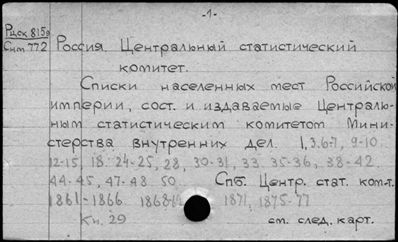 -1-
Рцск 815а
Спт 772
Россия. Центральный статистический
комитет.
Списки населенных мест Российской
империи, сост. и издаваемые Централь-
ным статистическим комитетом Мини-
стерства внутренних дел. 1, 3, 6-7, 9-10
12-15, 18, 24-25, 28, 30-31, 33, 35-36, 38-42
44-45, 47-48, 50. Спб. Центр. стат. ком-т.
1861-1866 1871, 1875-77
Кн. 29 см. след. карт.